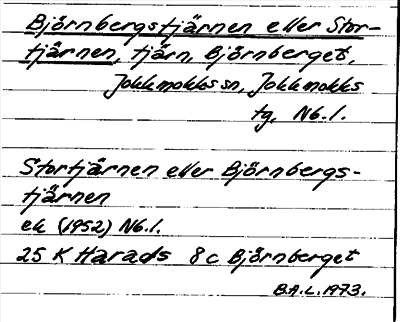 Björnbergstjärnen eller Stor-
tjärnen, tjärn, Björnberget,
Jokkmokks sn, Jokkmokks
tg, Nb.l.
Stortjärnen eller Björnbergs-
tjärnen
ek (1952) Nb.l.
25 K Harads 8c Björnberget
B.A.L. 1973.